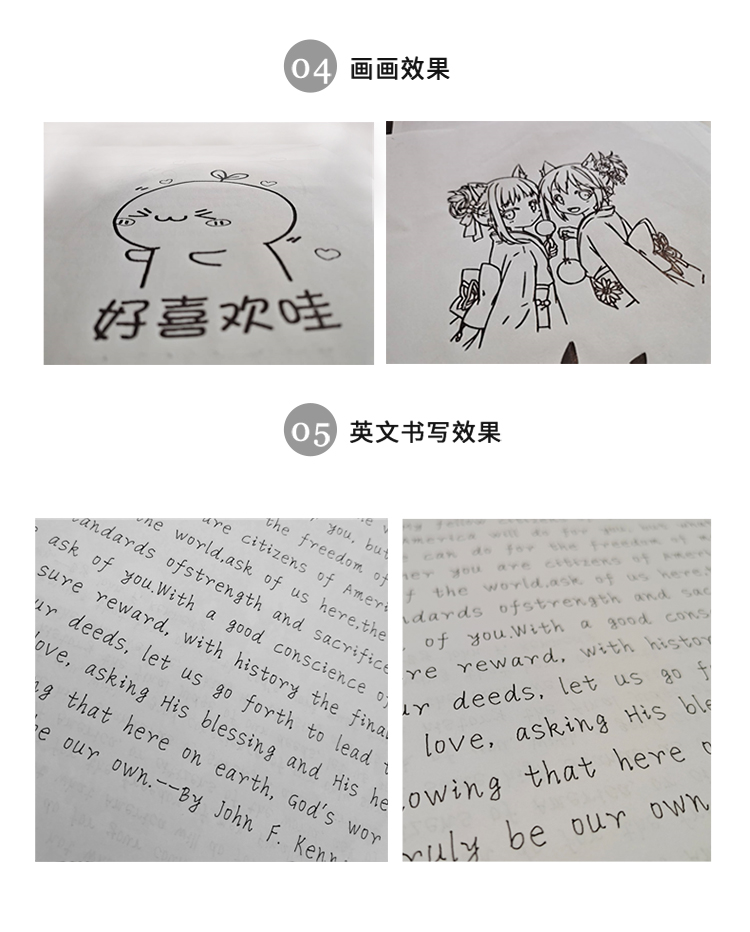 04 画画效果
好喜欢哇
05 英文书写效果
you, but
the freedom of
are citizens of Ameri
the world,ask of us here,the
andards ofstrength and sacrifice
ask of you.With a good conscience o
sure reward, with history the final
ur deeds, let us go forth to lead t
love, asking His blessing and His he
ng that here on earth, God's wor
be our own.--By John F. Kenn
America will do for you, but what
can do for the freedom of m
her you are citizens of Ameri
f the world,ask of us here,t
ndards ofstrength and sac
of you.With a good cons
re reward, with histor
ur deeds, let us go f
love, asking His ble
owing that here o
ruly be our own